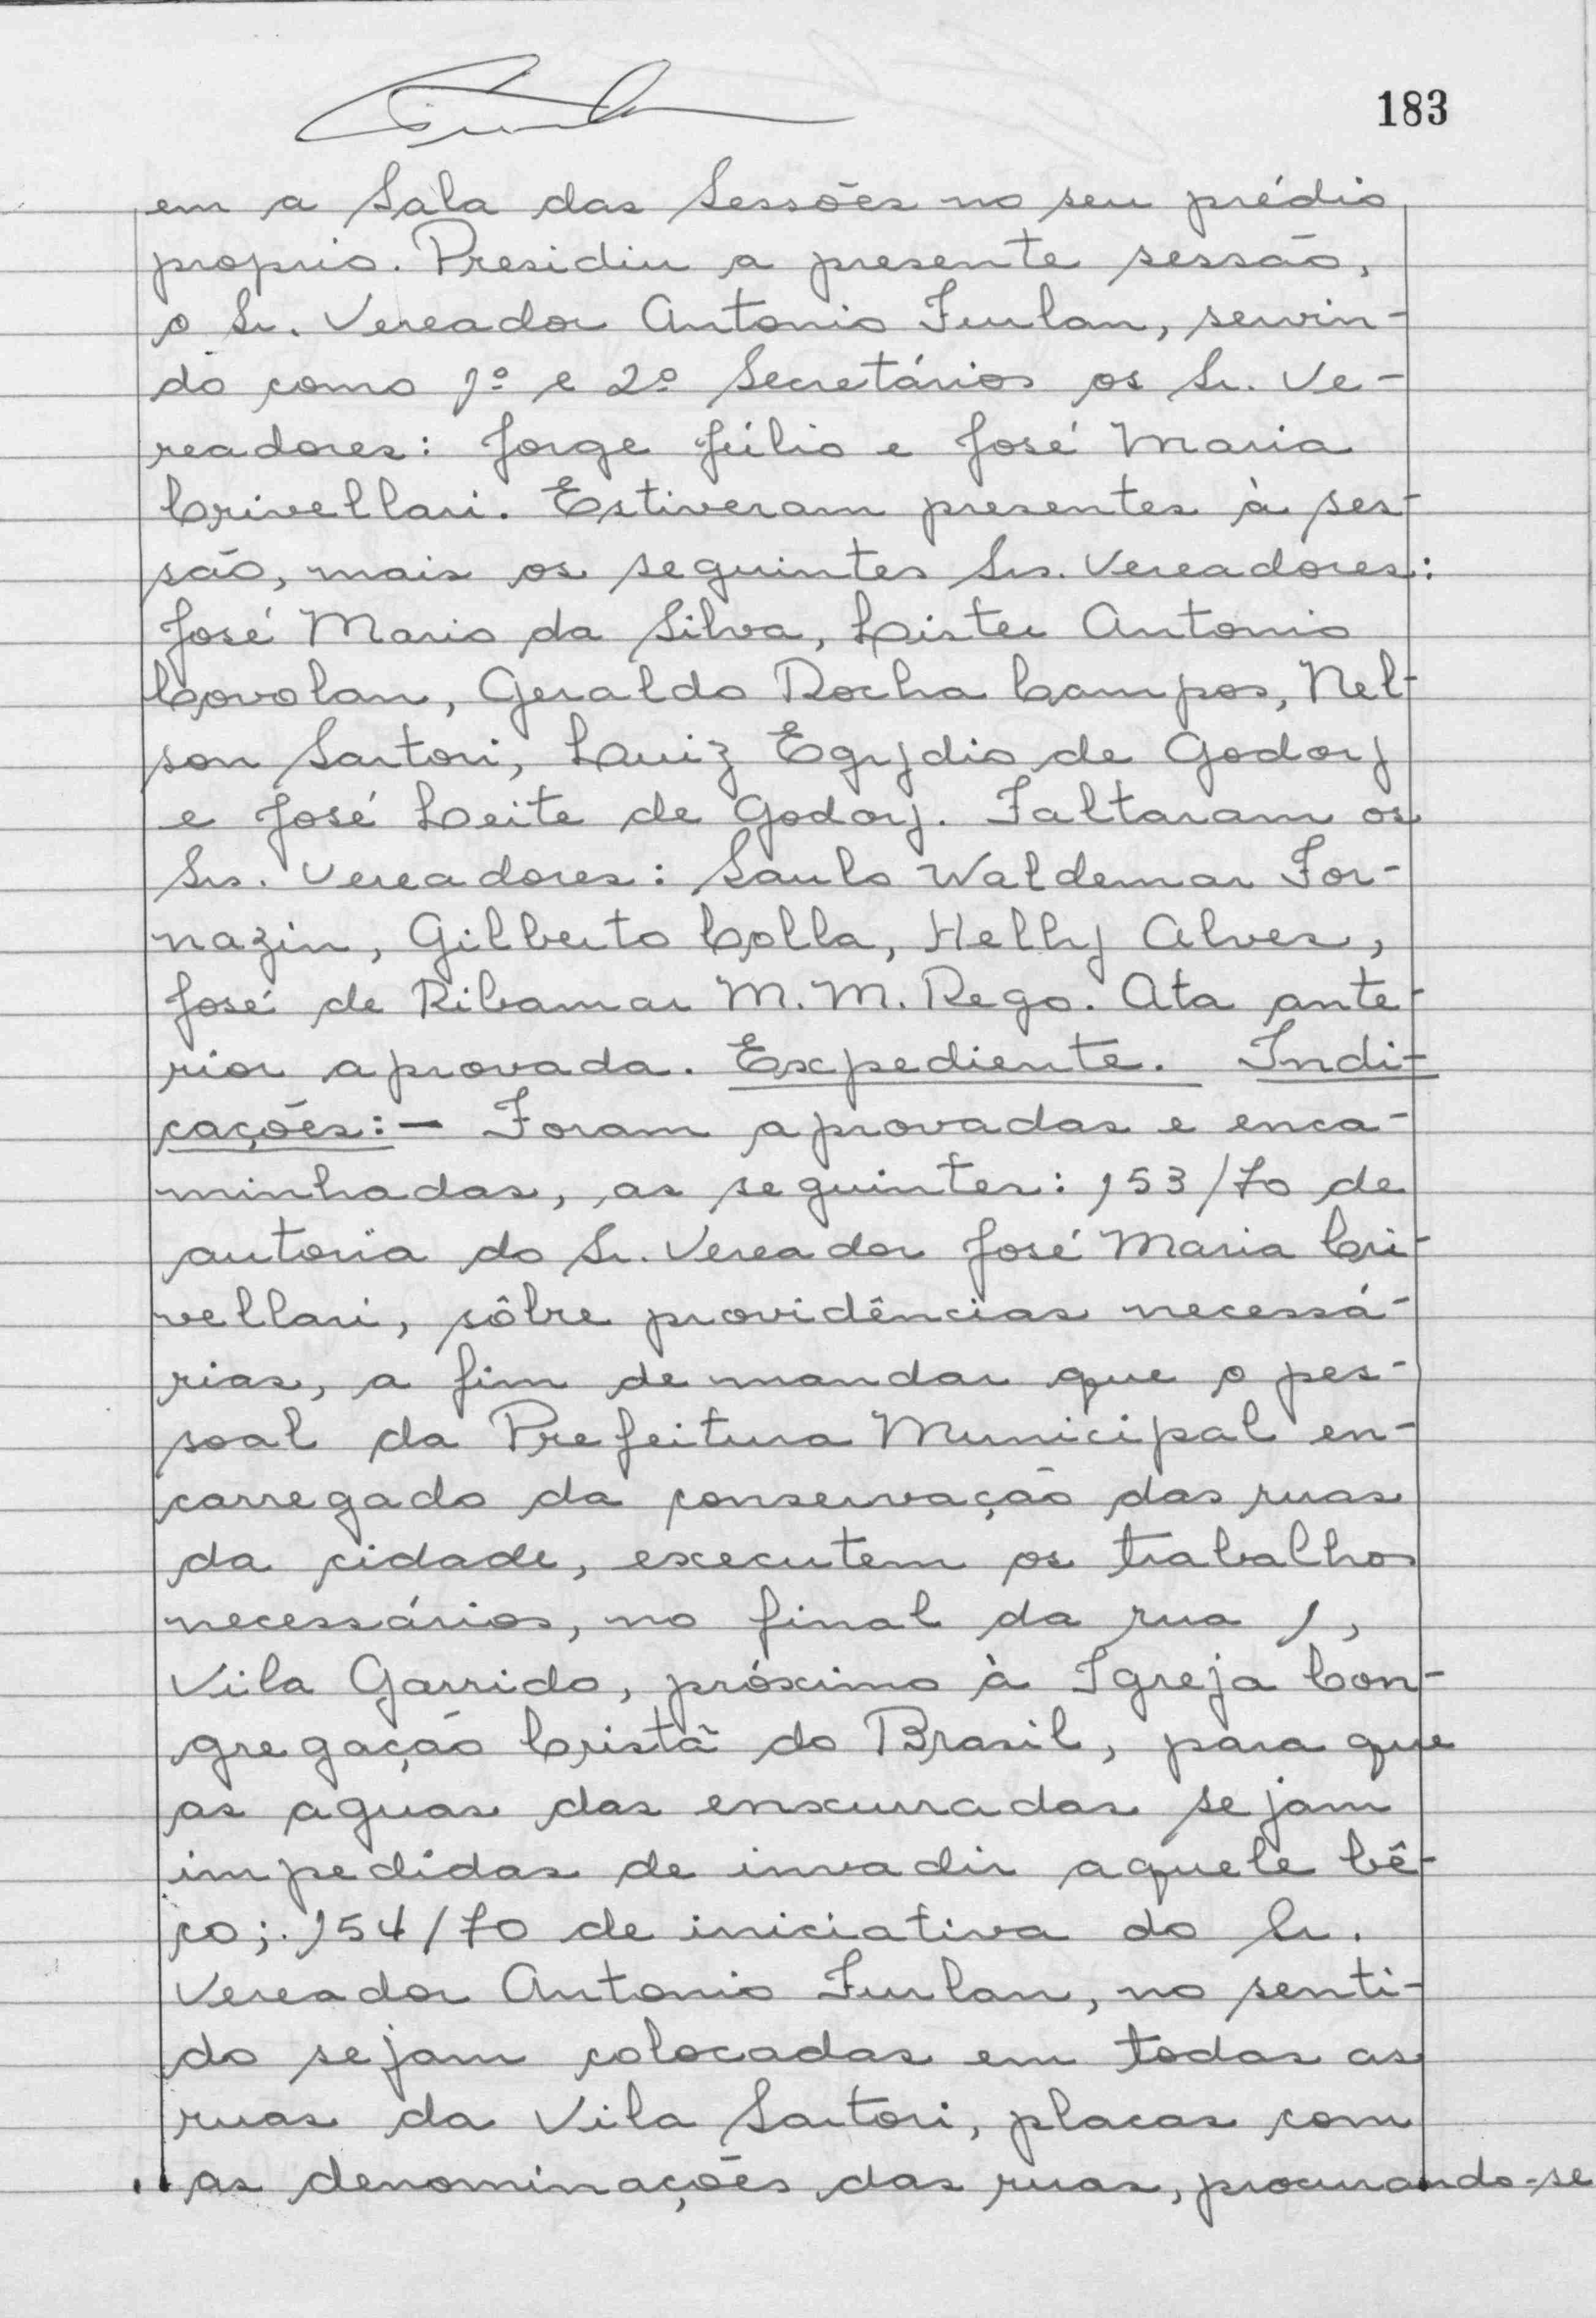 183
em a Sala das Sessões no seu prédio
proprio. Presidiu a presente sessão,
o Sr. Vereador Antonio Furlan, servin-
do como 1º e 2º Secretários os Sr. Ve-
readores: Jorge Júlio e José Maria
Crivellari. Estiveram presentes à ses-
são, mais os seguintes Srs. Vereadores:
José Mario da Silva, Lister Antonio
Covolan, Geraldo Rocha Campos, Nel-
son Sartori, Luiz Egydio de Godoy
e José Leite de Godoy. Faltaram os
Srs. Vereadores: Saulo Waldemar For-
nazin, Gilberto Colla, Helly Alves,
José de Ribamar M. M. Rego. Ata ante-
rior aprovada. Expediente. Indi-
cações:- Foram aprovadas e enca-
minhadas, as seguintes: 153/70 de
autoria do Sr. Vereador José Maria Cri-
vellari, sôbre providências necessá-
rias, a fim de mandar que o pes-
soal da Prefeitura Municipal en-
carregado da conservação das ruas
da cidade, executem os trabalhos
necessários, no final da rua 1,
Vila Garrido, próximo à Igreja Con-
gregação Cristã do Brasil, para que
as aguas das enxurradas sejam
impedidas de invadir aquele bê-
co; 154/70 de iniciativa do Sr.
Vereador Antonio Furlan, no senti-
do sejam colocadas em todas as
ruas da Vila Sartori, placas com
as denominações das ruas, procurando-se